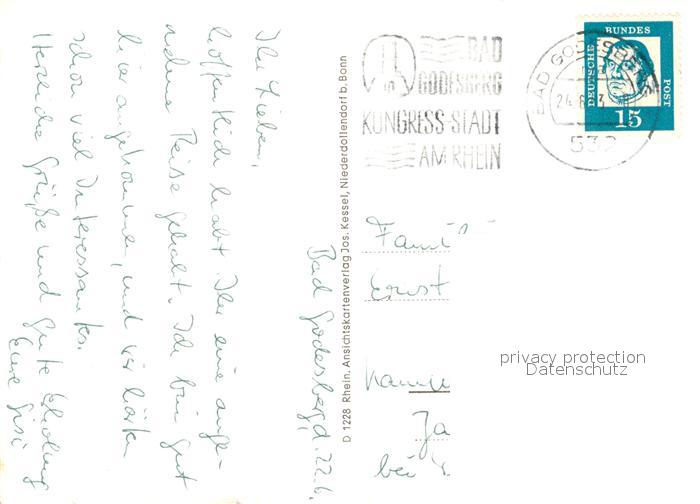 Bad Godesberg, d. 22.6.
Ihr Lieben,
hoffentlich habt Ihr eine ange-
nehme Reise gehabt. Ich bin gut
hier angekommen, und wir hörten
schon viel Interessantes.
Herzliche Grüße und gute Erholung
Eure Gisi
D 1228 Rhein. Ansichtskartenverlag Jos. Kessel, Niederdollendorf b. Bonn
BAD
GODESBERG
KONGRESS-STADT
AM RHEIN
BAD GODESBERG
24.6.
532
DEUTSCHE BUNDES POST
15
Ernst
Ja
bei
privacy protection
Datenschutz